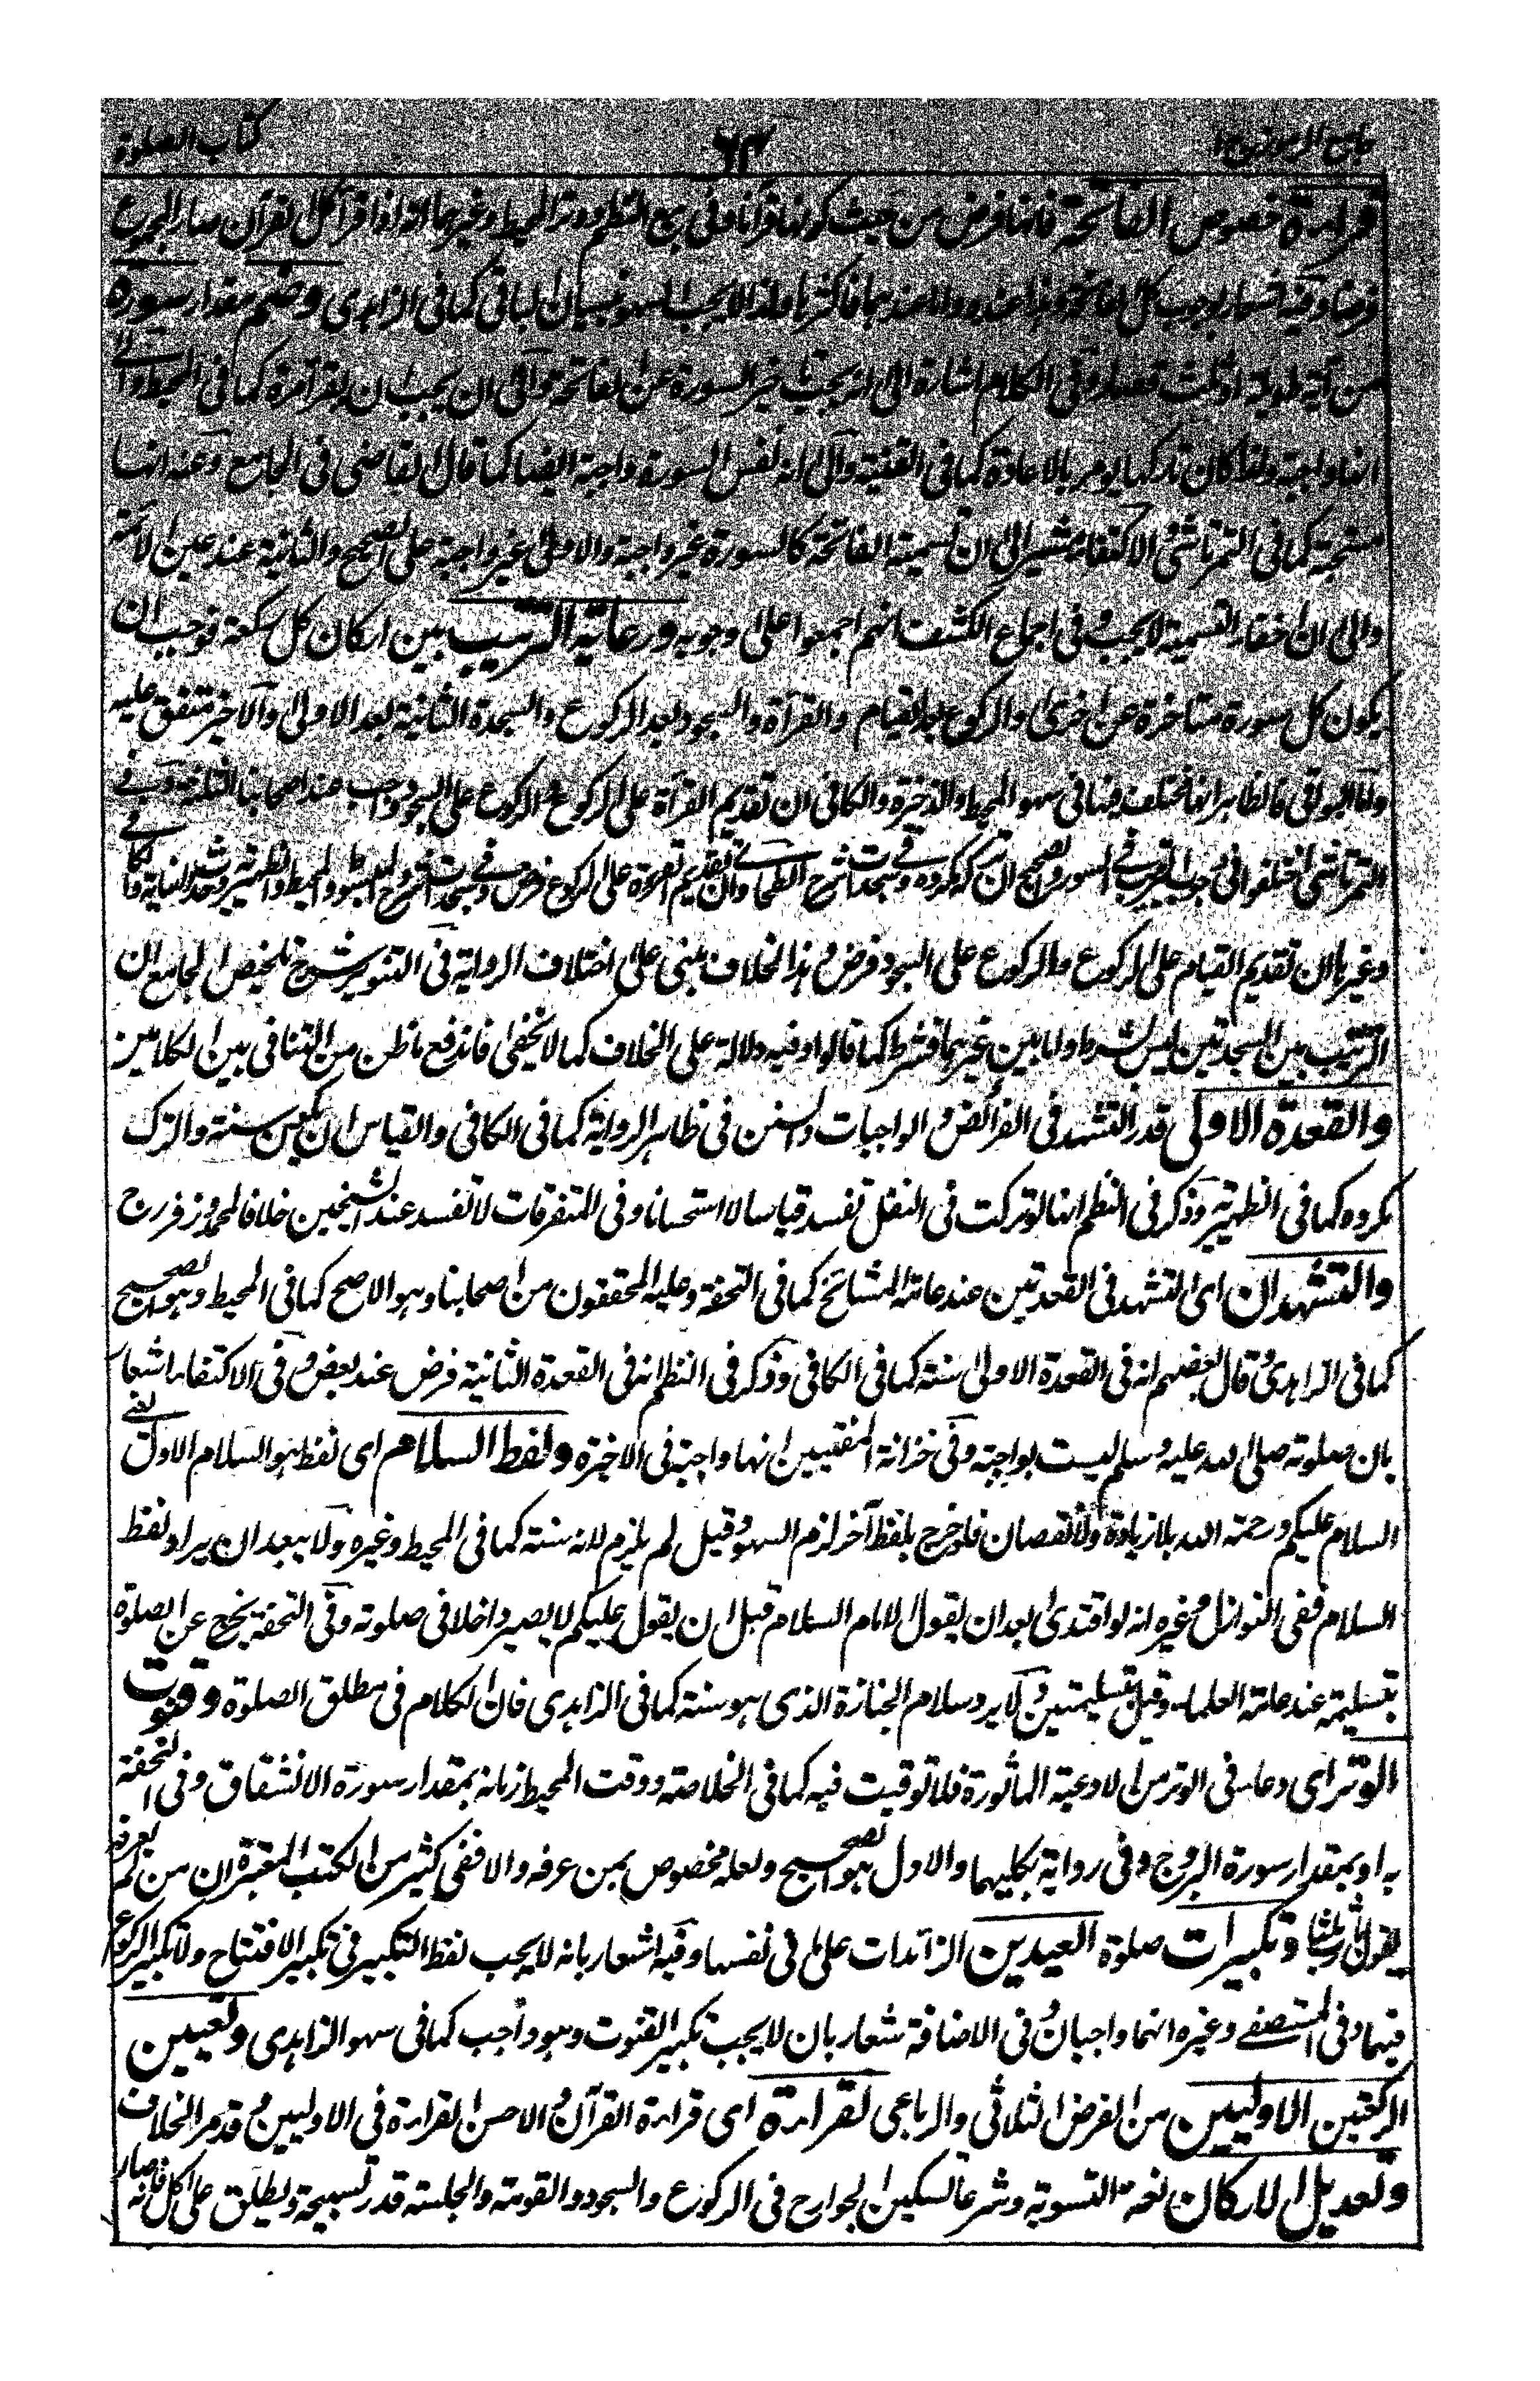 جامع الرموز ج ا
٦٣
كتاب الصلوة
قراءة خصوص الفاتحة فانها فرض من حيث كونها قرآنا وفى بيع النظم وزلة المحيط وغيرهما انه اذا قرأ كل القرآن صار المجموع
فرضا وفيه اشعار بوجوب كل الفاتحة وهذا عنده واما عندهما فاكثرها ولذا لا يجب السهو بنسيان الباقى كما فى الزاهدى وضم مقدار سورة
من آية طويلة او ثلث قصار وفى الكلام اشارة الى انه يجب تاخير السورة عن الفاتحة والى ان يجب ان يقرأ مرة كما فى المحيط والى
انها واجبة ولذا كان تاركها يومر بالاعادة كما فى القنية والى ان نفس السورة واجبة ايضا كما قال القاضى فى الجامع وعنه انها
مستحبة كما فى التمرتاشى الاكتفاء مشير الى ان تسمية الفاتحة كالسورة غير واجبة والاولى غير واجبة على الصحيح والثانية عند عين الائمة
والى ان اخفاء التسمية لا يجب وفى اجماع الكشف انهم اجمعوا على وجوبه ورعاية الترتيب بين اركان كل ركعة فوجب ان
يكون كل سورة متاخرة عن اخرى والركوع بعد القيام والقرآة والسجود بعد الركوع والسجدة الثانية بعد الاولى والاخير متفق عليه
واما البواقى فالظاهر انها مختلف فيها فى سهو المحيط والذخيرة والكافى ان تقديم القرآة على الركوع والركوع على السجود واجب عند اصحابنا الثلثة
التمرتاشى اختلفوا فى وجوب الترتيب فى السور والصحيح ان تركه مكروه تقديم القرآة على الركوع فرض
وغيرها ان تقديم القيام على الركوع والركوع على السجود فرض وهذا الخلاف مبنى على اختلاف الرواية فى التنوير شرح تلخيص الجامع ان
الترتيب بين السجدتين ليس بشرط واما بين غيرهما فشرط كما قالوا وفيه دلالة على الخلاف كما لا يخفى فاندفع ما ظن من التنافى بين الكلامين
والقعدة الاولى قدر التشهد فى الفرائض والواجبات والسنن فى ظاهر الرواية كما فى الكافى والقياس ان يكون سنة والترك
مكروه كما فى الظهيرية وذكر فى النظم انها لو تركت فى النفل تفسد قياسا لا استحسانا وفى المتفرقات لا تفسد عند الشيخين خلافا لمحمد وزفر رح
والتشهدان اى التشهد فى القعدتين عند عامة المشائخ كما فى التحفة وعليه المحققون من اصحابنا وهو الاصح كما فى المحيط وهو الصحيح
كما فى الزاهدى وقال بعضهم انه فى القعدة الاولى سنة كما فى الكافى وذكر فى النظم انه فى القعدة الثانية فرض عند بعض وفى الاكتفاء اشعار
بان صلوته صلى الله عليه وسلم ليست بواجبة وفى خزانة المفتيين انها واجبة فى الاخيرة ولفظ السلام اى لفظ هو السلام الاول
السلام عليكم ورحمة الله بلا زيادة ولا نقصان فلو خرج بلفظ آخر لزم السهو وقيل لم يلزم لانه سنة كما فى المحيط وغيره ولا يبعد ان يراد لفظ
السلام ففى النوازل وغيره انه لو اقتدى بعد ان يقول الامام السلام قبل ان يقول عليكم لا يصير داخلا فى صلوته وفى التحفة يخرج عن الصلوة
بتسليمة عند عامة العلماء وقيل بتسليمتين ولا يرد سلام الجنازة الذى هو سنة كما فى الزاهدى فان الكلام فى مطلق الصلوة وقنوت
الوتر اى دعاء فى الوتر من الادعية الماثورة فلا توقيت فيه كما فى الخلاصة ووقت المحيط زمانه بمقدار سورة الانشقاق وفى التحفة
به او بمقدار سورة البروج وفى رواية بكليهما والاول هو الصحيح ولعله مخصوص بمن عرفه والا ففى كثير من الكتب المعتبرة ان من لم يعرفه
يقول يا رب ثلثا وتكبيرات صلوة العيدين الزائدات على ما فى نفسها وفيه اشعار بانه لا يجب لفظ التكبير فى تكبير الافتتاح ولا تكبير الركوع
فيها وفى المستصفى وغيره انهما واجبان وفى الاضافة اشعار بان لا يجب تكبير القنوت وهو واجب كما فى سهو الزاهدى وتعيين
الركعتين الاوليين من الفرض الثلاثى والرباعى لقراءة اى قراءة القرآن والاحسن القراءة فى الاوليين وقد مر الخلاف
وتعديل الاركان لغة التسوية وشرعا تسكين الجوارح فى الركوع والسجود والقومة والجلسة قدر تسبيحة ويطلق على كل فانه صار